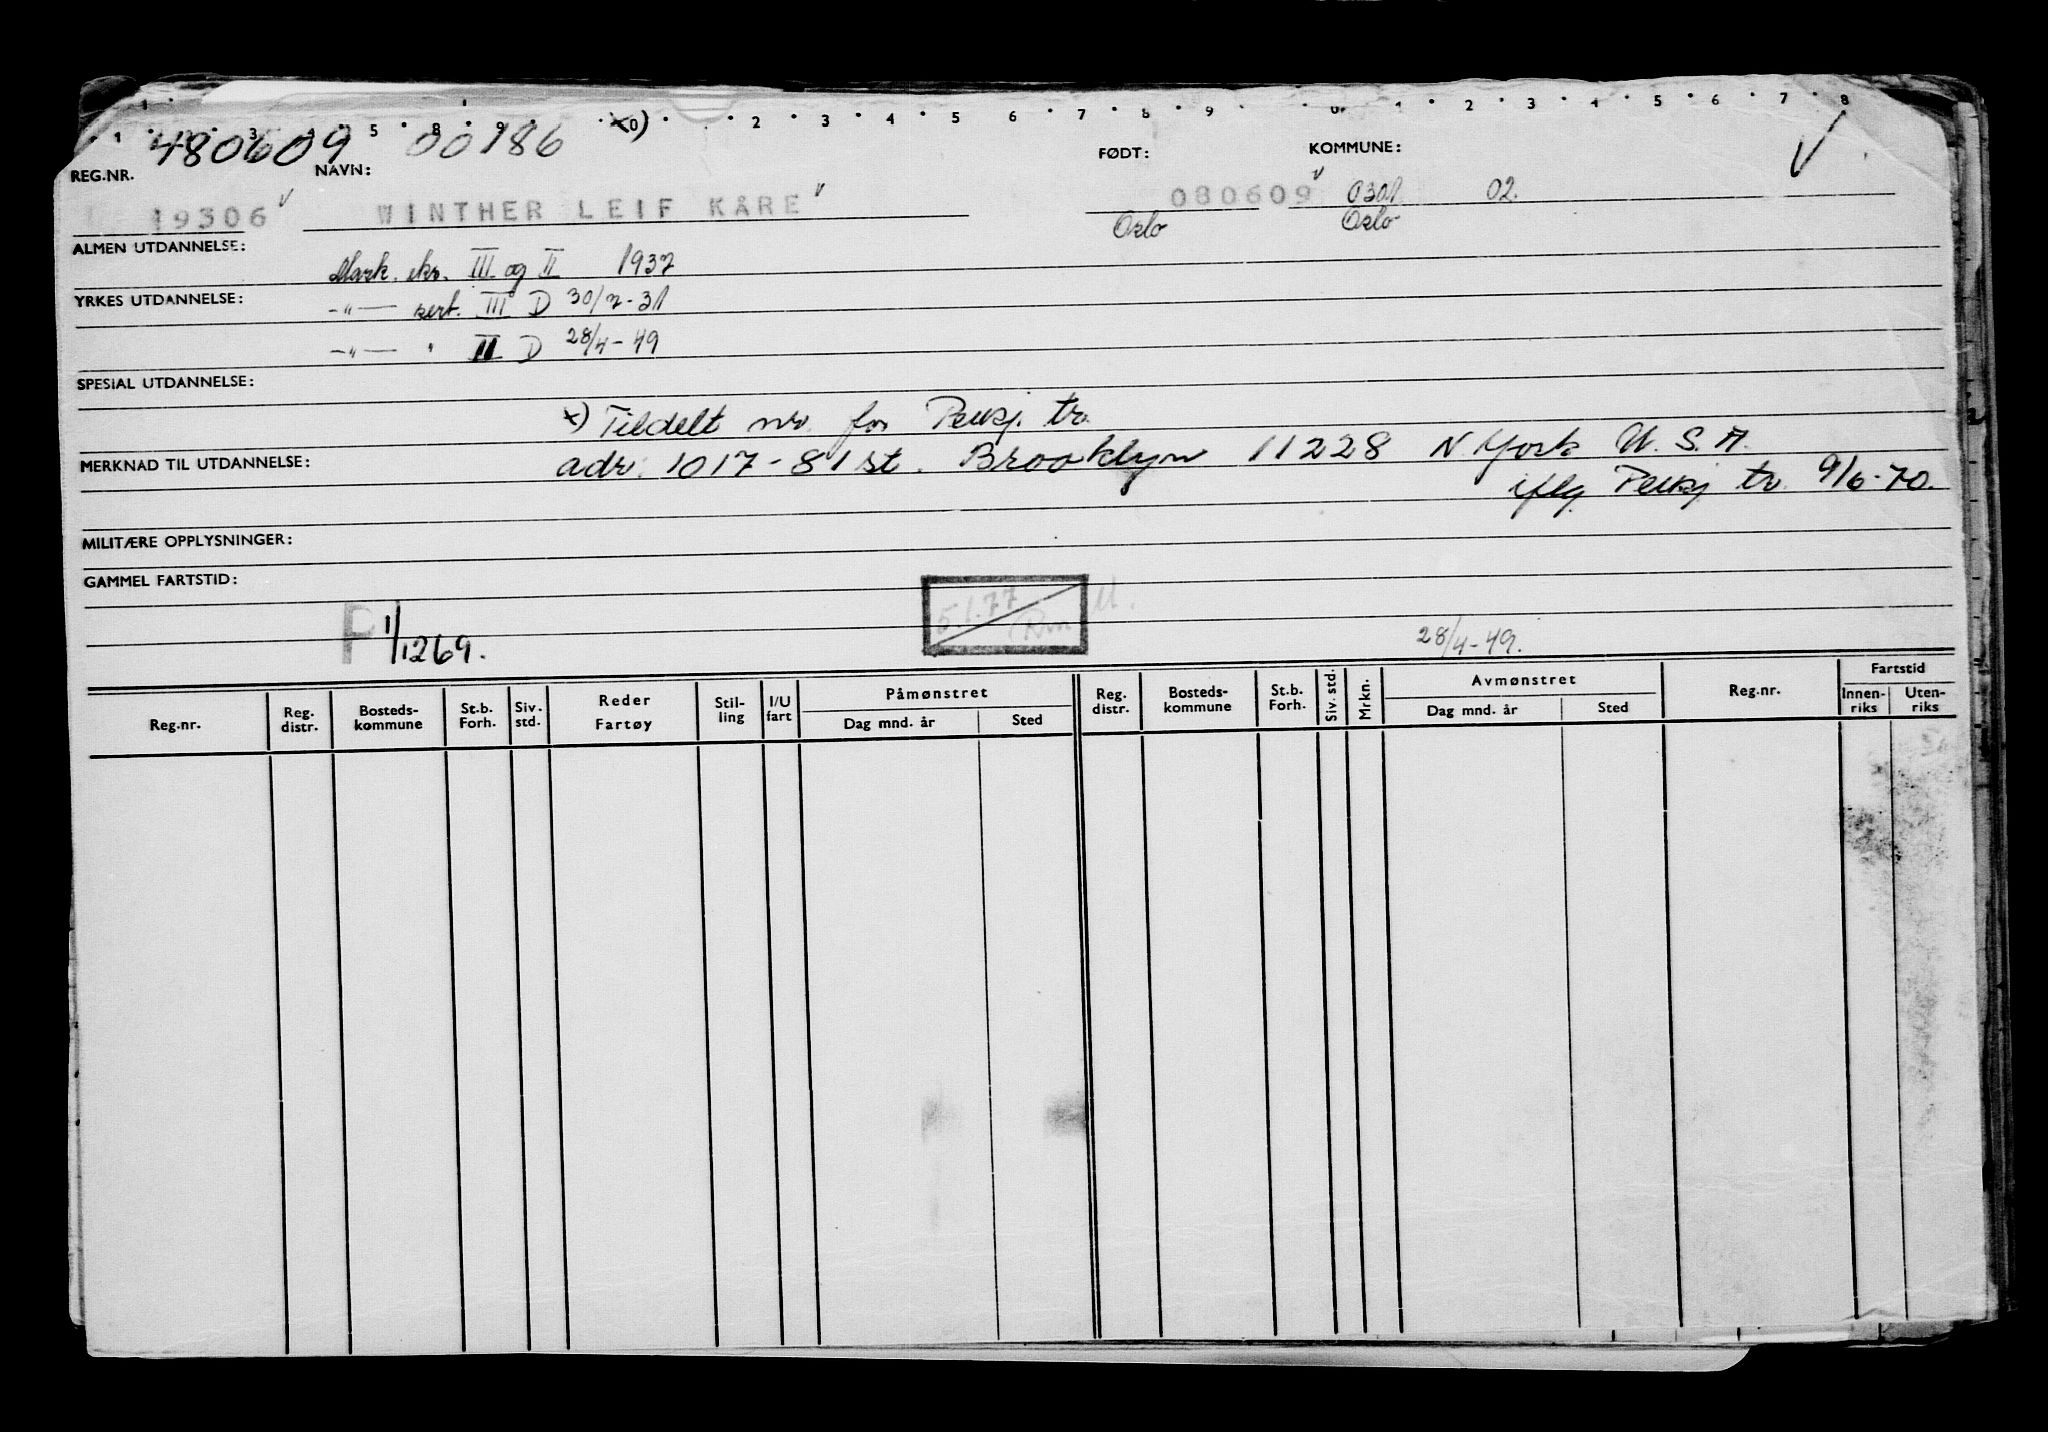 1 2 3 4 5 8 9 x0) 2 3 4 5 6 7 8 9 0 1 2 3 4 5 6 7 8
480609 00186
REG.NR. NAVN: FØDT: KOMMUNE: V
19306 WINTHER LEIF KÅRE 080609 0301 02.
Oslo Oslo
ALMEN UTDANNELSE:
Mask. skr. III og II 1937
YRKES UTDANNELSE:
-"- sert. III D 30/7-31
-"- " II D 28/4-49
SPESIAL UTDANNELSE:
x) Tildelt nr. for Penkj. tr.
MERKNAD TIL UTDANNELSE: adr. 1017-81 st. Brooklyn 11228 N. York U.S.A.
iflg. Penkj tr. 9/6-70.
MILITÆRE OPPLYSNINGER:
GAMMEL FARTSTID:
P 1/1269. 5.1.77 M.
28/4-49.
Reg.nr. Reg. distr. Bosteds- kommune St.b. Forh. Siv. std. Reder Fartøy Stil- ling I/U fart Påmønstret Dag mnd. år Sted Reg. distr. Bosteds- kommune St.b. Forh. Siv. std. Mrkn. Avmønstret Dag mnd. år Sted Reg.nr. Fartstid Innen- riks Uten- riks